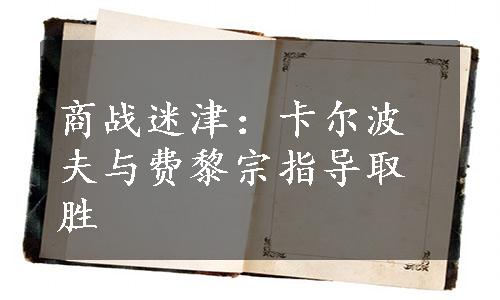 商战迷津：卡尔波
夫与费黎宗指导取
胜